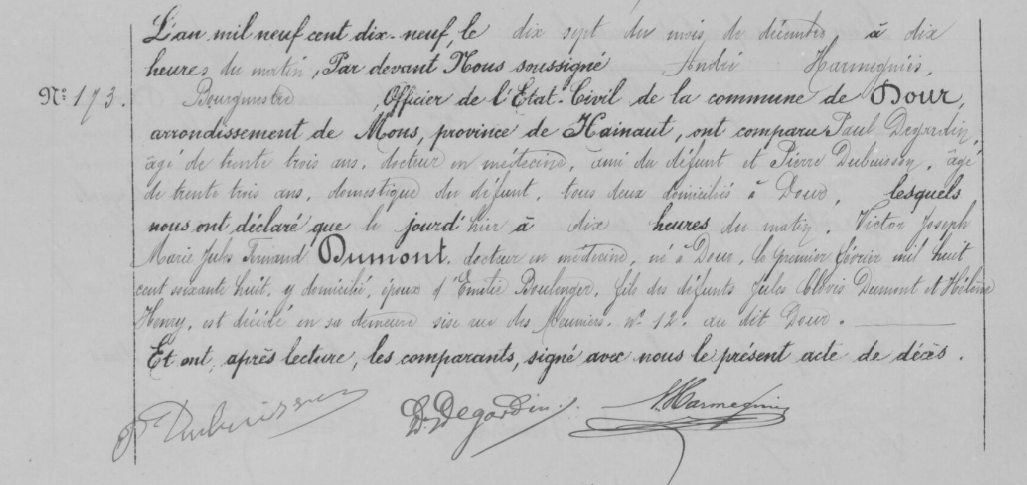 L'an mil neuf cent dix-neuf, le dix sept du mois de décembre, à dix
heures du matin, Par devant Nous soussigné André Harmegnies,
N° 173. Bourgmestre, Officier de l'Etat-Civil de la commune de Dour,
arrondissement de Mons, province de Hainaut, ont comparu Paul Degardin,
âgé de trente trois ans, docteur en médecine, ami du défunt et Pierre Dubuisson, âgé
de trente trois ans, domestique du défunt, tous deux domiciliés à Dour, lesquels
nous ont déclaré que le jourd'hier à dix heures du matin, Victor Joseph
Marie Jules Fernand Dumont, docteur en médecine, né à Dour, le premier février mil huit
cent soixante huit, y domicilié, époux d'Emilie Boulenger, fils des défunts Jules Clovis Dumont et Hélène
Henry, est décédé en sa demeure sise rue des Meuniers, n° 12, au dit Dour.
Et ont, après lecture, les comparants, signé avec nous le présent acte de décès.
P Dubuisson Dr Degardin A. Harmegnies